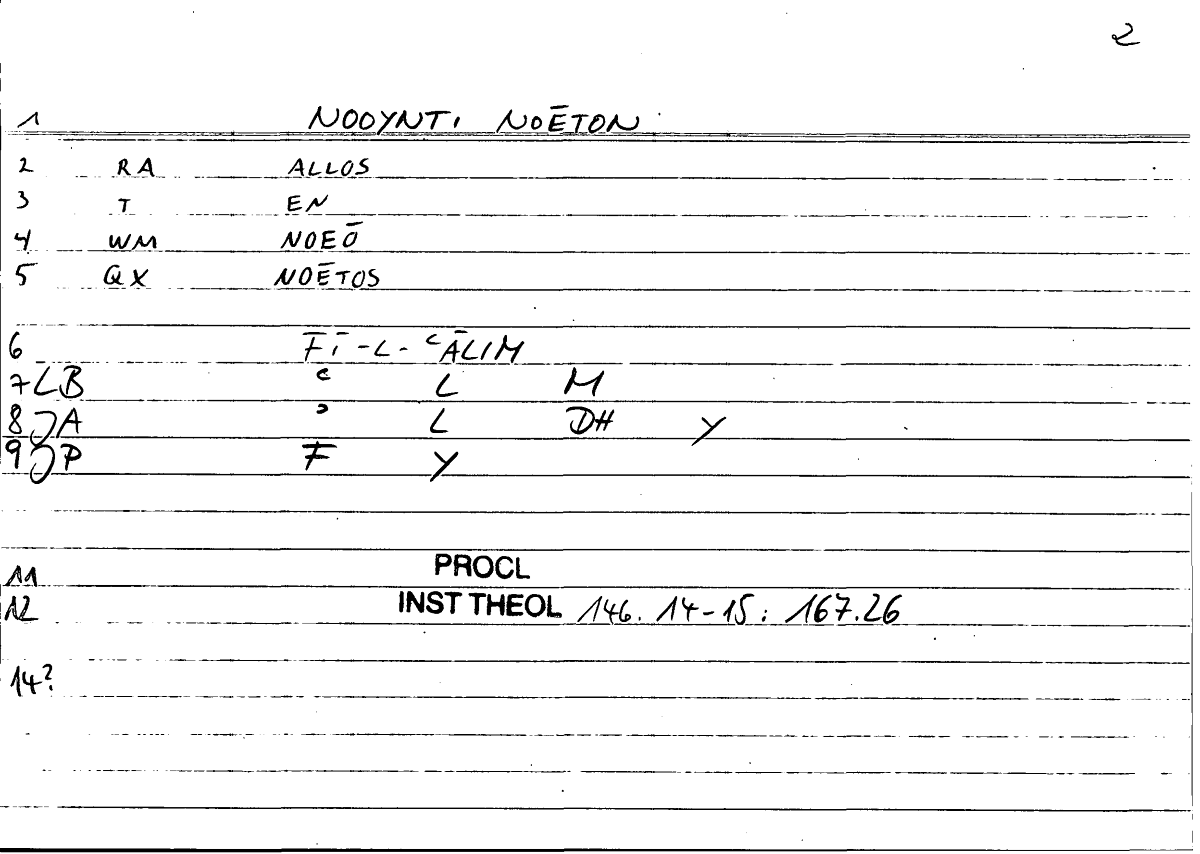 2
1 NOOYNTI NOĒTON
2 RA ALLOS
3 T EN
4 WM NOEŌ
5 QX NOĒTOS
6 FĪ-L-ʿĀLIM
7 LB ʿ L M
8 JA ʾ L DH Y
9 JP F Y
11 PROCL
12 INST THEOL 146. 14-15 : 167.26
14?